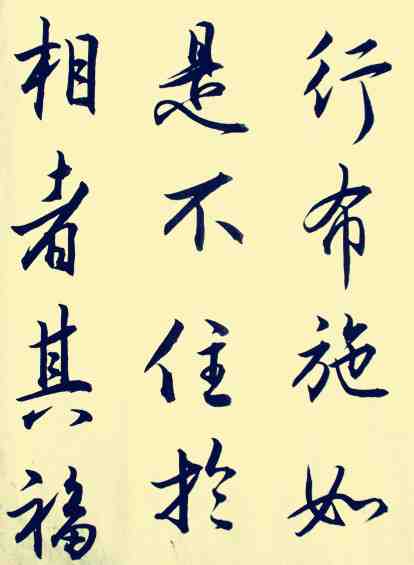 行布施如
是不住於
相者其福